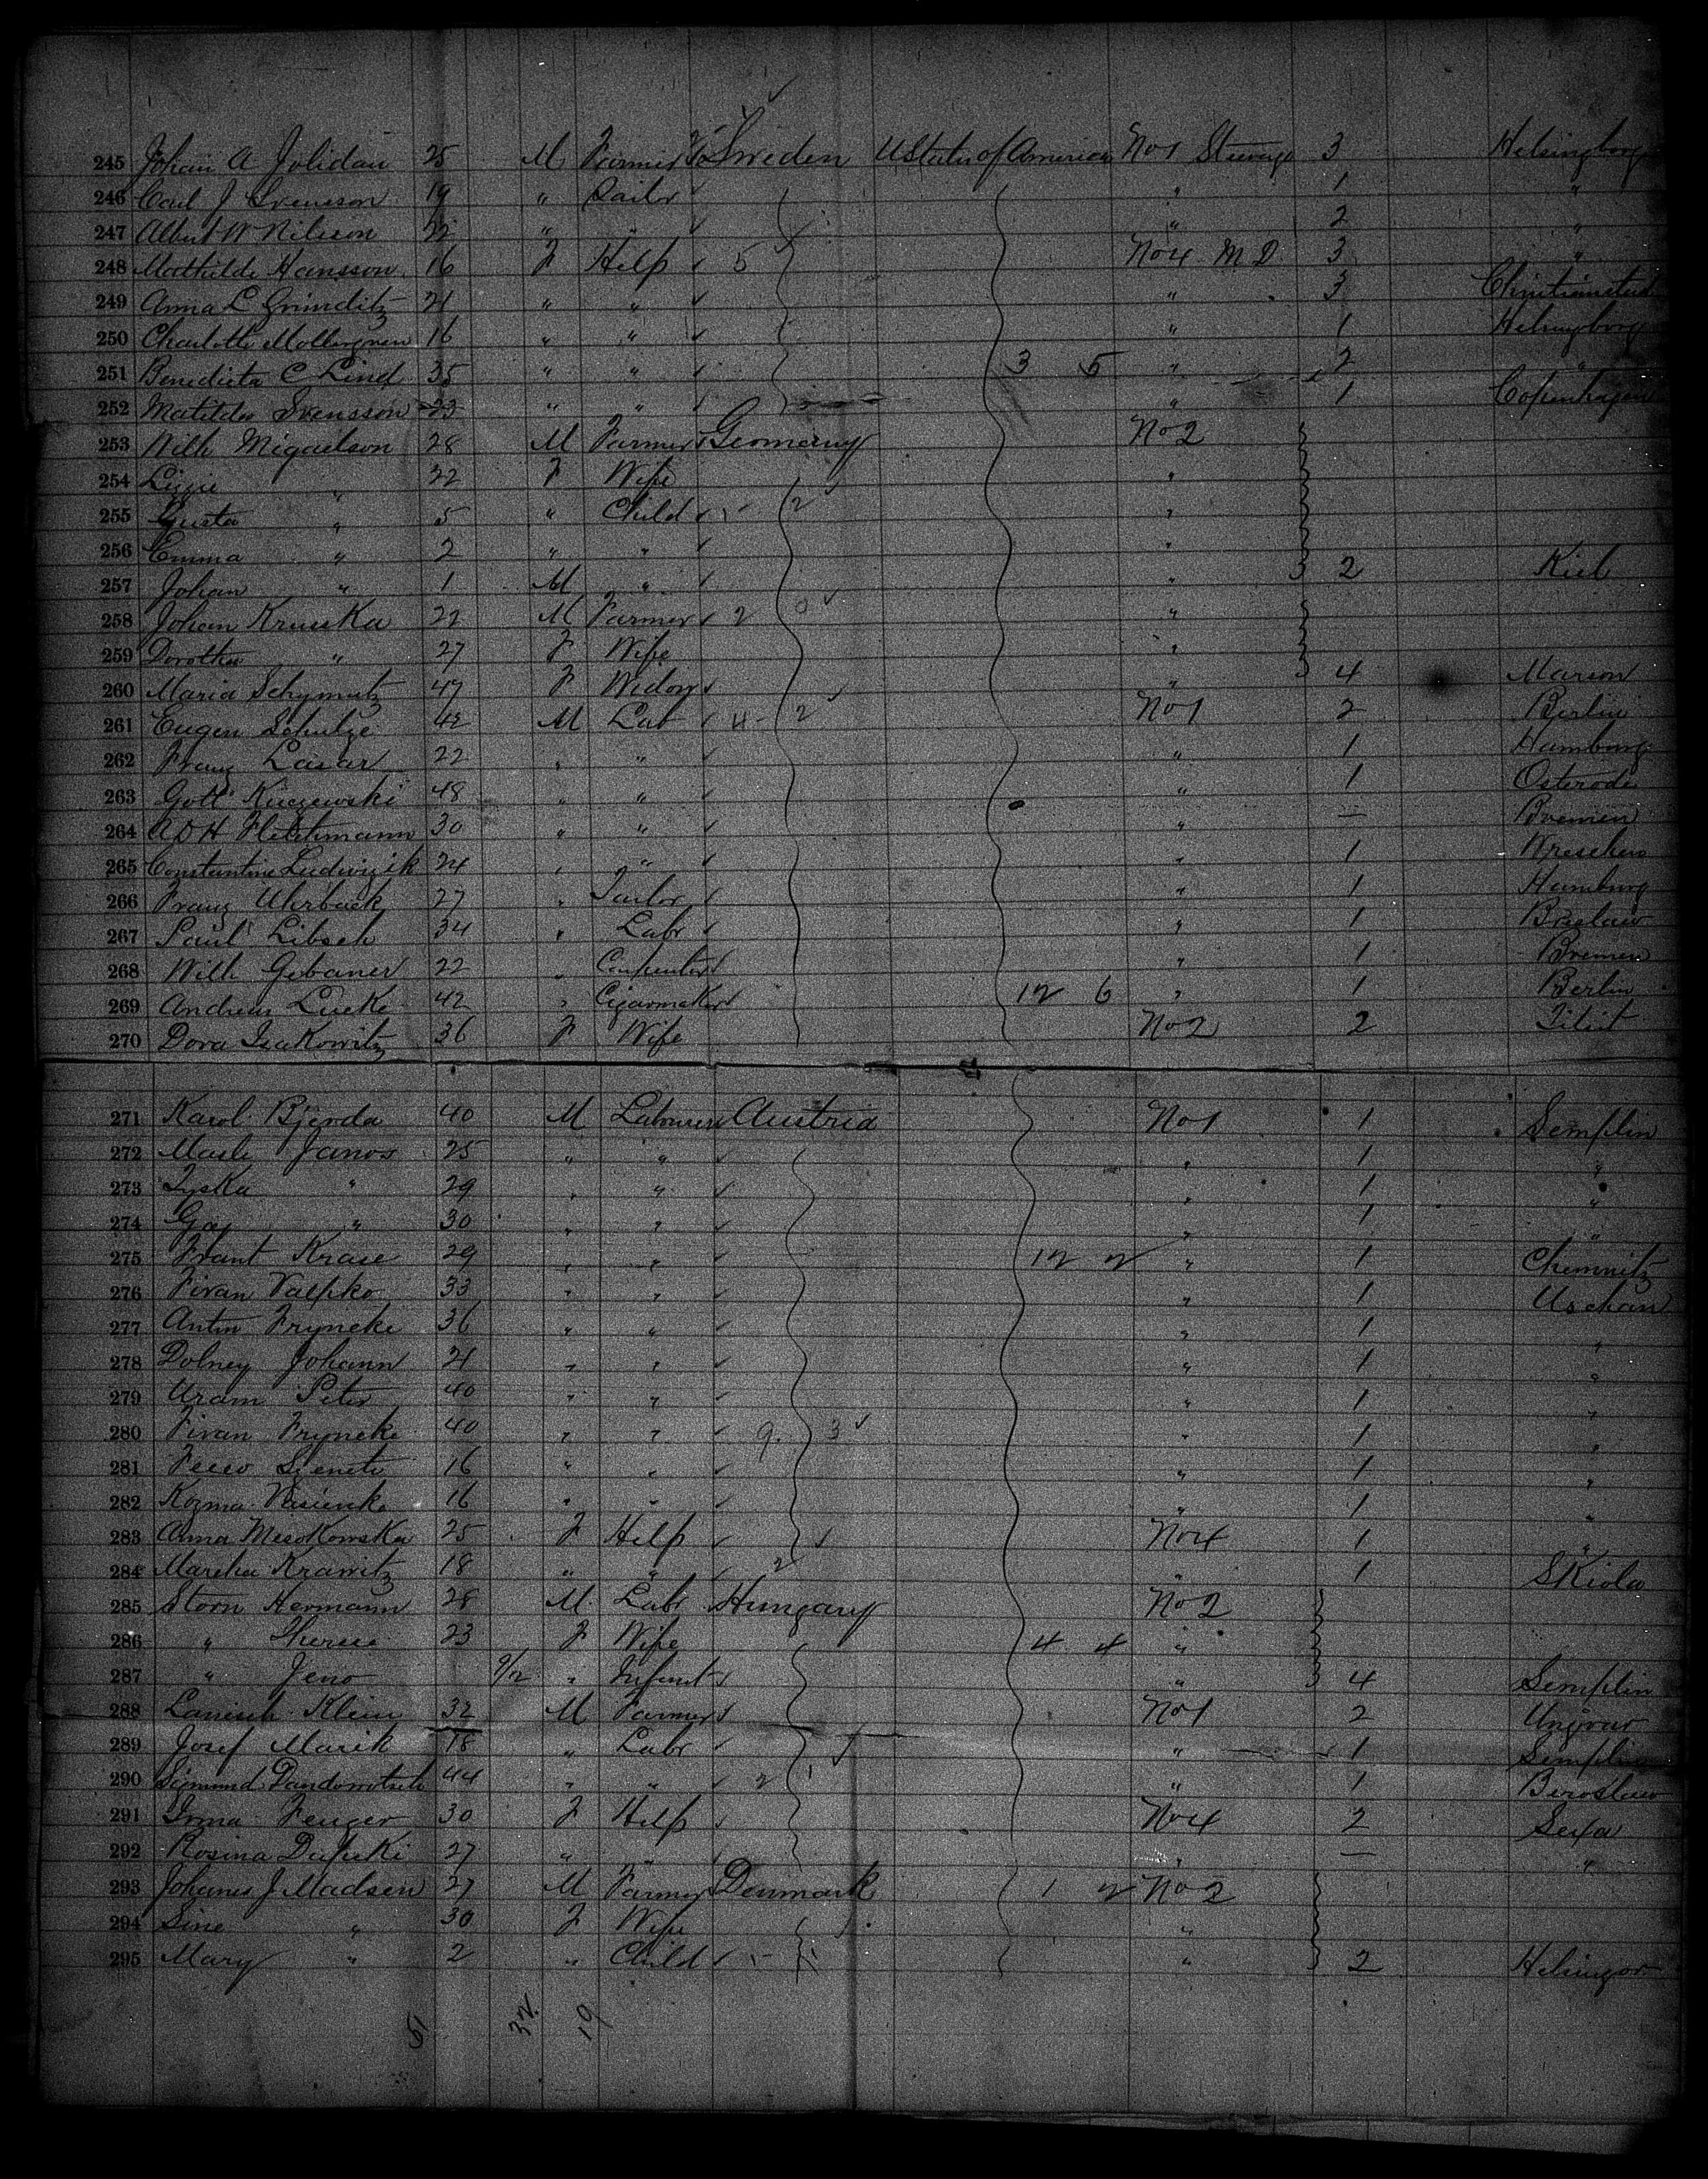 245 Johan A Jolidau 25 M Farmer Sweden U States of America No 1 Steerage 3 Helsingborg
246 Carl J Svensson 19 " Sailor " 1 "
247 Albert W Nilsson 22 " " " 2 "
248 Mathilde Hansson 16 F Help 5 No 4 M D 3 "
249 Anna L Grinditz 21 " " " 3 Christianstad
250 Charlotte Mollergren 16 " " " 1 Helsingborg
251 Benedicta C Lind 35 " " 3 5 " 2 "
252 Matilda Svensson 23 " " " 1 Copenhagen
253 Wilh Migaelson 28 M Farmer Germany No 2
254 Lizzie " 22 F Wife "
255 Gusta " 5 " Child 2 "
256 Emma " 2 " " "
257 Johan " 1 M " " 2 Kiel
258 Johan Kruska 22 M Farmer 2 0 "
259 Dorothea " 27 F Wife "
260 Maria Schymutz 47 F Widow " 4 Marion
261 Eugen Schulze 42 M Lab 4 - 2 No 1 2 Berlin
262 Franz Lasar 22 " " " 1 Hamburg
263 Gott Kuczewski 48 " " " 1 Osterode
264 A D H Fletchmann 30 " " " — Bremen
265 Constantine Ludwizik 24 " " " 1 Wreschen
266 Franz Uhrback 27 " Tailor " 1 Hamburg
267 Paul Libsch 34 " Labr " 1 Breslaw
268 Wilh Gebauer 22 " Carpenter " 1 Bremen
269 Andreas Lucke 42 " Cigarmaker 12 6 " 1 Berlin
270 Dora Isakowitz 36 F Wife No 2 2 Tilsit
271 Karol Bjerda 40 M Labourer Austria No 1 1 Semplin
272 Masli Janos 25 " " " 1 "
273 Tyska " 29 " " " 1 "
274 Gaj " 30 " " " 1 "
275 Frant Krase 29 " " 12 2 " 1 Chemnitz
276 Fivan Valpko 33 " " " 1 Uschan
277 Antin Fryncke 36 " " " 1 "
278 Dolney Johann 21 " " " 1 "
279 Uram Peter 40 " " " 1 "
280 Fivan Fryncke 40 " " 9 3 " 1 "
281 16 " " " 1 "
282 Kozma Vasienko 16 " " " 1 "
283 Anna Mesokowska 25 F Help No 4 1 "
284 Mareha Krawitz 18 " " 2 " 1 Skiola
285 Storn Hermann 28 M Labr Hungary No 2
286 " Therese 23 F Wife 4 4 "
287 " Jeno 9/12 " Infant " 4 Semplin
288 Lanisch Klein 32 M Farmer No 1 2 Ungvar
289 Josef Marik 18 " Labr " 1 Semplin
290 Sigmund Dandowotsch 44 " " 2 1 " 1 Beroslaw
291 Irma Fenger 30 F Help No 4 2 Sexa
292 Rosina Dufuki 27 " " " — "
293 Johanes J Madsen 27 M Farmer Denmark 1 2 No 2
294 Sine " 30 F Wife "
295 Mary " 2 " Child 1 " 2 Helsingor
51 32 19